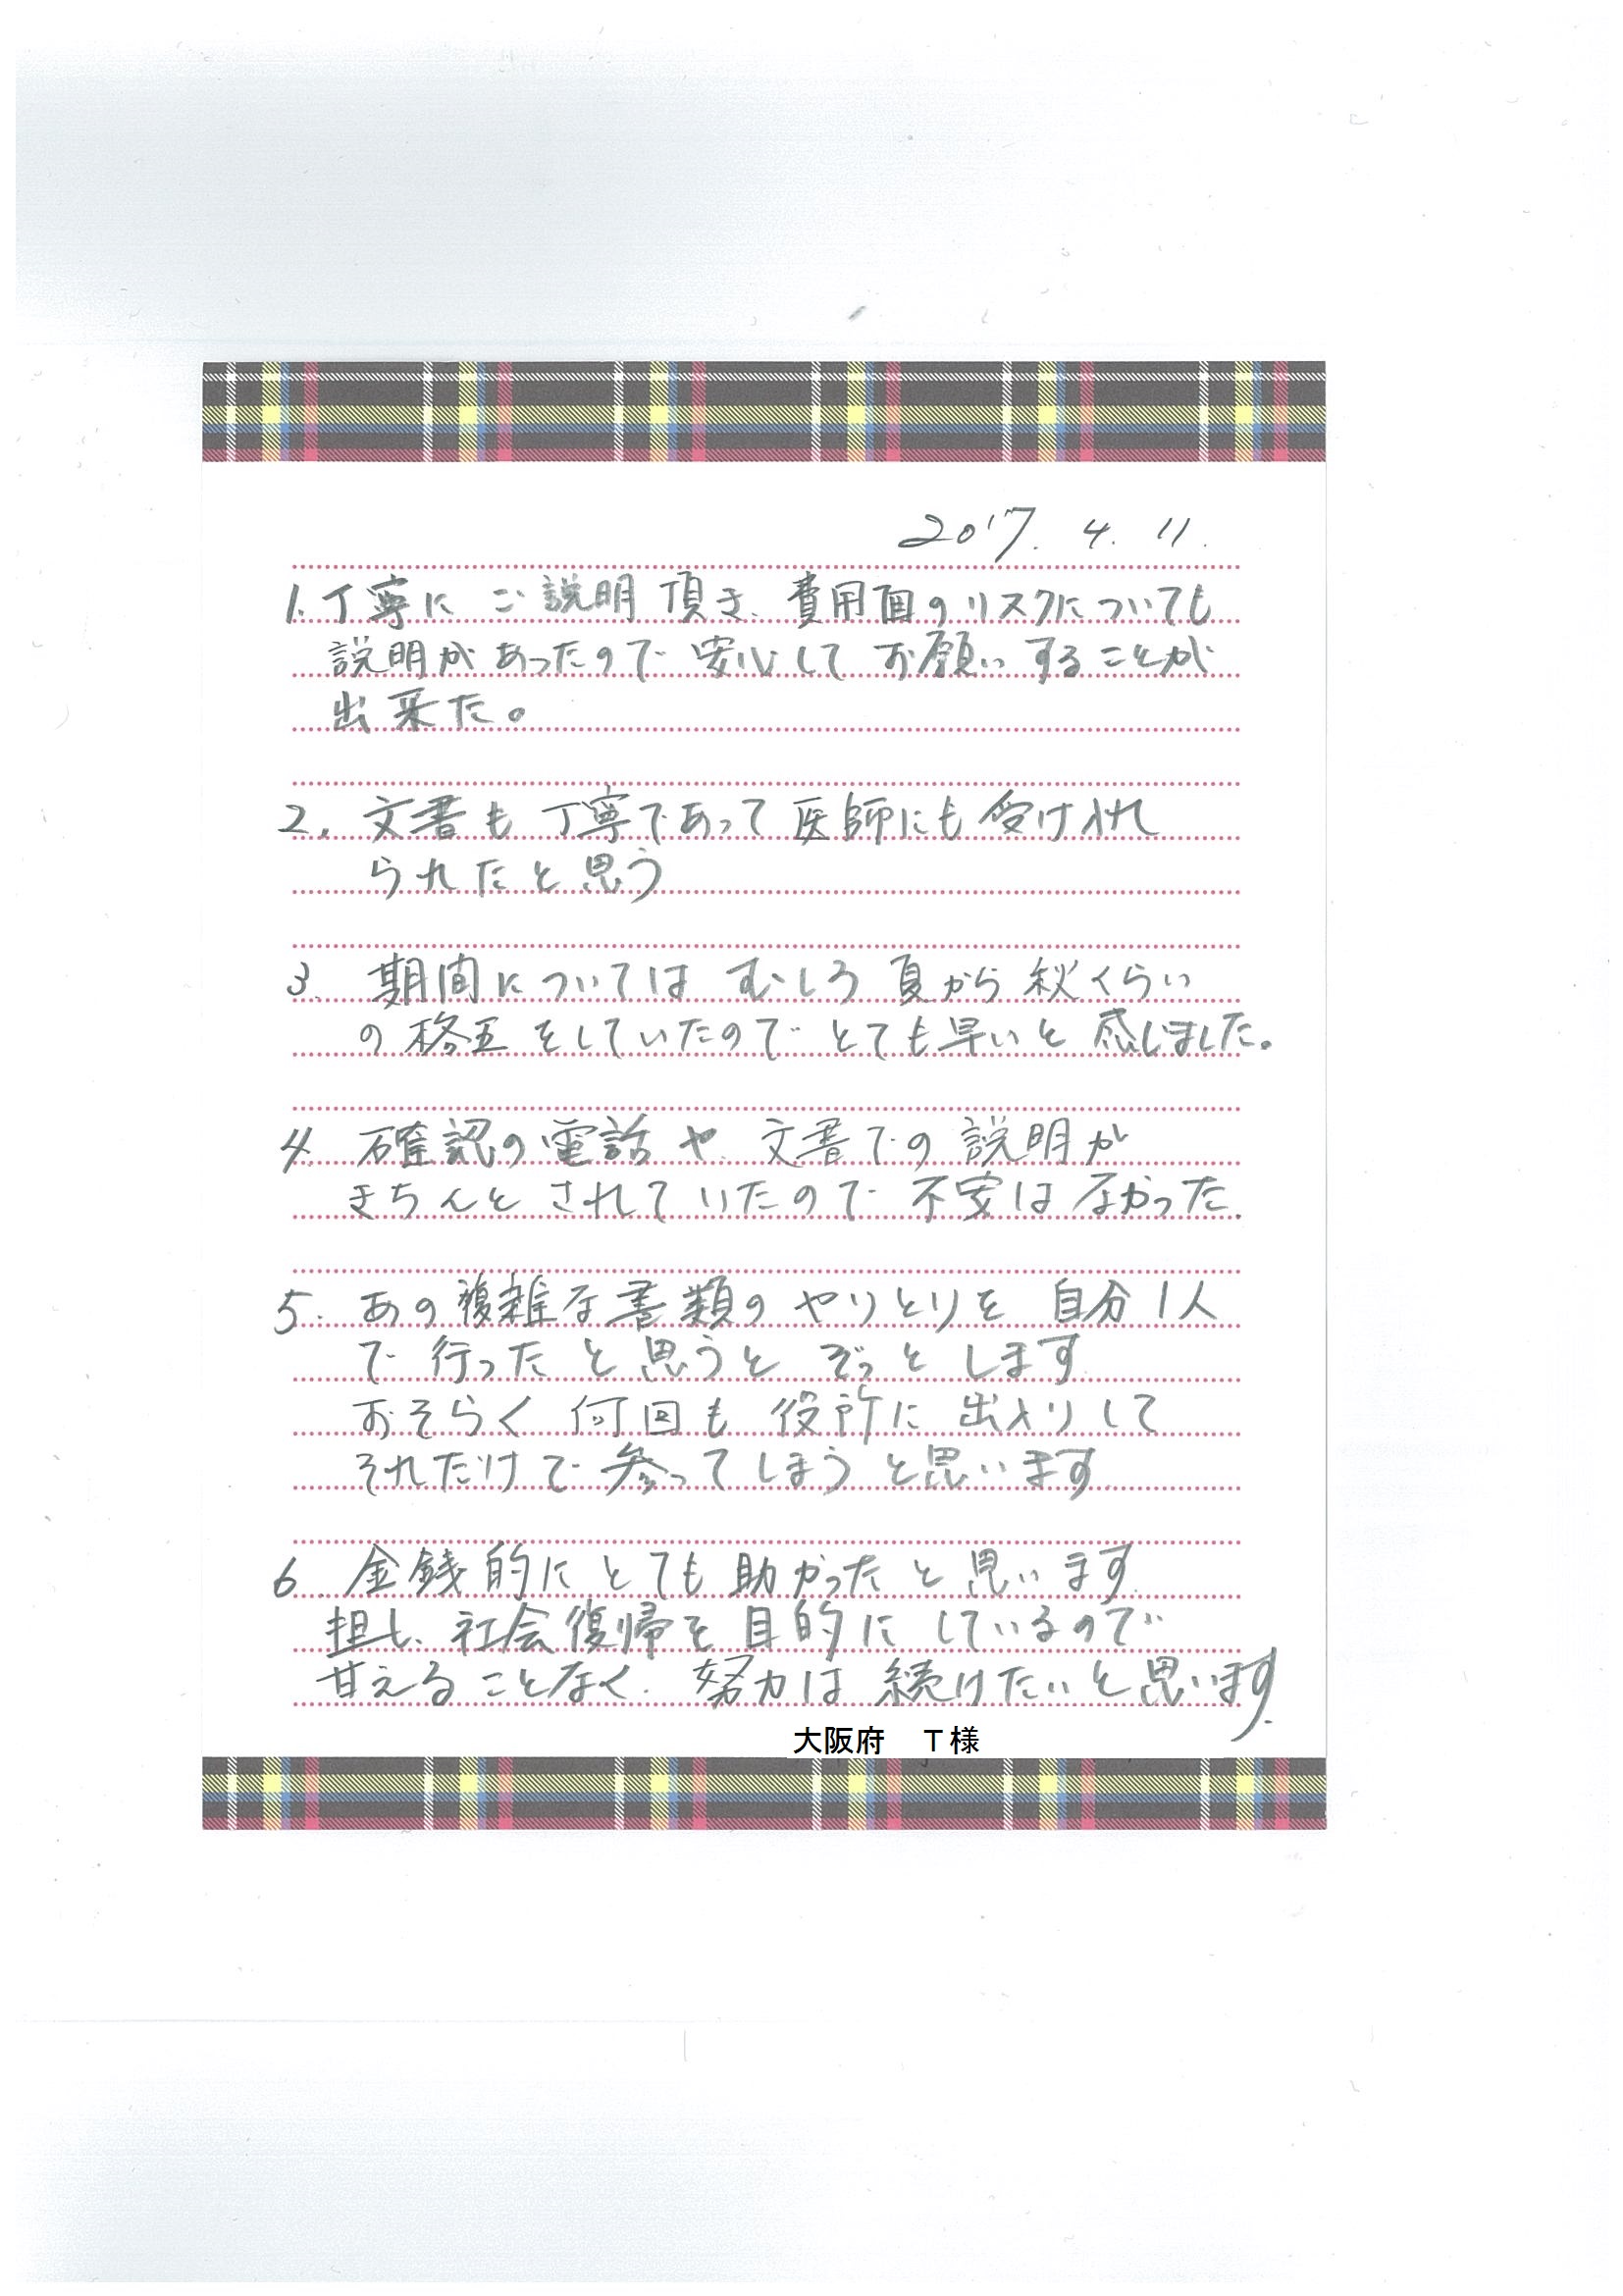 2017. 4. 11.
1. 丁寧に ご説明 頂き、費用面のリスクについても
説明があったので 安心して お願いすることが
出来た。
2. 文書も 丁寧であって 医師にも 受け入れ
られたと思う
3. 期間については むしろ 夏から 秋くらい
の 格五 をしていたので とても早いと 感じました。
4. 確認の電話や、文書での 説明が
きちんと されていたので 不安は なかった.
5. あの 複雑な書類の やりとりを 自分1人
で 行ったと思うと ぞっとします
おそらく 何回も 役所に 出入りして
それだけで 参ってしまうと思います
6 金銭的に とても 助かったと思います.
担し、社会復帰を 目的に しているので
甘えることなく、努力は 続けたいと思います.
大阪府　T様